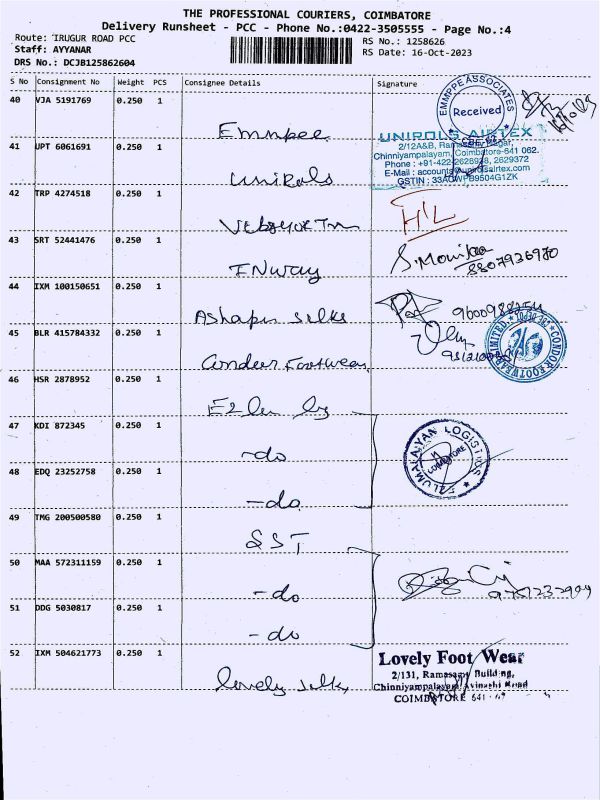 THE PROFESSIONAL COURIERS, COIMBATORE
Delivery Runsheet - PCC - Phone No.:0422-3505555 - Page No.:4
Route: IRUGUR ROAD PCC
RS No.: 1258626
Staff: AYYANAR
RS Date: 16-Oct-2023
DRS No.: DCJB125862604
S No Consignment No Weight PCS Consignee Details Signature
40 VJA 5191769 0.250 1
EMMPPE ASSOCIATES
Received
Emmpee
41 UPT 6061691 0.250 1
UNIROLS AIRTEX
2/12A&B,
Chinniyampalayam, Coimbatore-641 062.
Phone : +91-422-2626928, 2629372
E-Mail : accounts@unirolsairtex.com
GSTIN : 33AAWPB9504G1ZK
Unirols
42 TRP 4274518 0.250 1
43 SRT 52441476 0.250 1
S. Monika
8807936970
INway
44 IXM 100150651 0.250 1
Ashapur silks
45 BLR 415784332 0.250 1
CONDOR FOOTWEAR LIMITED
Condeer Footwear
46 HSR 2878952 0.250 1
47 KDI 872345 0.250 1
LOGISTICS
COIMBATORE
-do
48 EDQ 23252758 0.250 1
-do
49 TMG 200500580 0.250 1
SST
50 MAA 572311159 0.250 1
-do
51 DDG 5030817 0.250 1
-do
52 IXM 504621773 0.250 1
Lovely Foot Wear
2/131, Ramasamy Building,
Chinniyampalayam, Avinashi Road
COIMBATORE 641
lovely silks